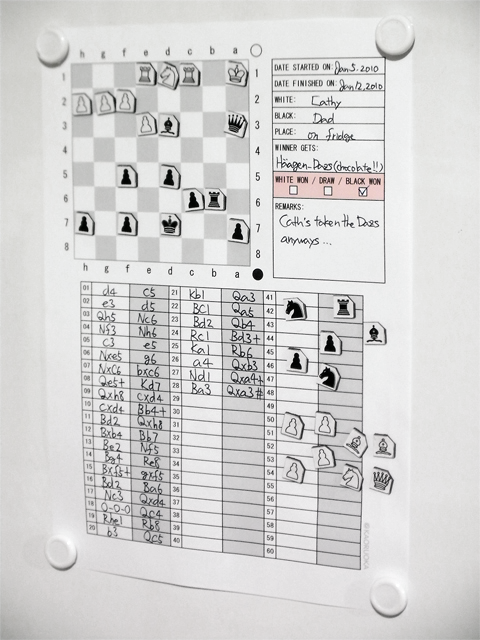 h g f e d c b a
1 1
2 2
3 3
4
5 5
6 6
7 7
8 8
h g f e d c b a
DATE STARTED ON: Jan 5. 2010
DATE FINISHED ON: Jan 12. 2010
WHITE: Cathy
BLACK: Dad
PLACE: on fridge
WINNER GETS:
Häagen-Dazs (chocolate!!)
WHITE WON / DRAW / BLACK WON
REMARKS:
Cath's taken the Dazs
anyways...
01 d4 c5 21 Kb1 Qa3 41
02 e3 d5 22 BC1 Qa5 42
03 Qh5 Nc6 23 Bd2 Qb4 43
04 Nf3 Nh6 24 Rc1 Bd3+ 44
05 c3 e5 25 Ka1 Rb6 45
06 Nxe5 g6 26 a4 Qxb3 46
07 NxC6 bxc6 27 Nd1 Qxa4+ 47
08 Qe5+ Kd7 28 Ba3 Qxa3# 48
09 Qxh8 cxd4 29 49
10 cxd4 Bb4+ 30 50
11 Bd2 Qxh8 31 51
12 Bxb4 Bb7 32 52
13 Be2 Nf5 33 53
14 Bg4 Re8 34 54
15 Bxf5+ gxf5 35 55
16 Bd2 Ba6 36 56
17 Nc3 Qxd4 37 57
18 O-O-O Qc4 38 58
19 Rhe1 Rb8 39 59
20 b3 Qc5 40 60